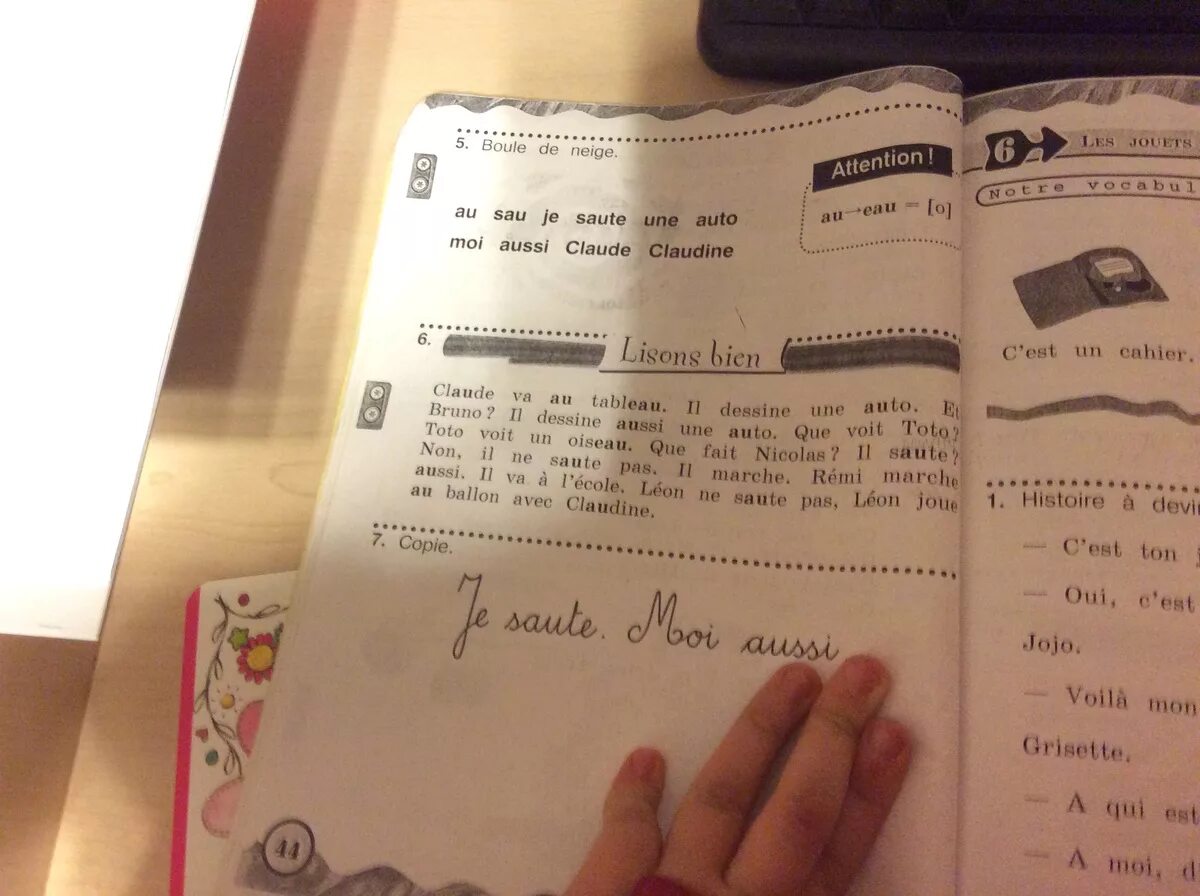 5. Boule de neige.
au sau je saute une auto
moi aussi Claude Claudine
Attention !
au→eau = [o]
6. Lisons bien
Claude va au tableau. Il dessine une auto. Et
Bruno? Il dessine aussi une auto. Que voit Toto?
Toto voit un oiseau. Que fait Nicolas? Il saute?
Non, il ne saute pas. Il marche. Rémi marche
aussi. Il va à l'école. Léon ne saute pas, Léon joue
au ballon avec Claudine.
7. Copie.
Je saute. Moi aussi
44
6 LES JOUETS
Notre
C'est un cahier.
1. Histoire à
— C'est ton
— Oui, c'est
Jojo.
— Voilà mon
Grisette.
— A qui est
— A moi,